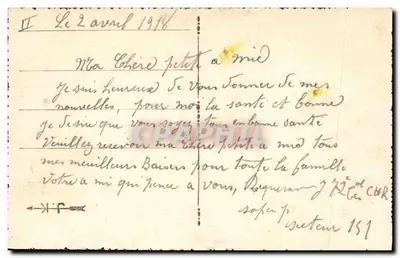 II Le 2 avril 1918
Ma Chère petite a mie
Je suis heureux de vous donner de mes
nouvelles, pour moi la santé et bonne
je desire que vous soyez tous en bonne santé
Veuillez recevoir ma Chere petite a mie tous
mes meuilleurs Baisers pour toute la famille
Votre a mi qui pence a vous,
secteur 151
J.K